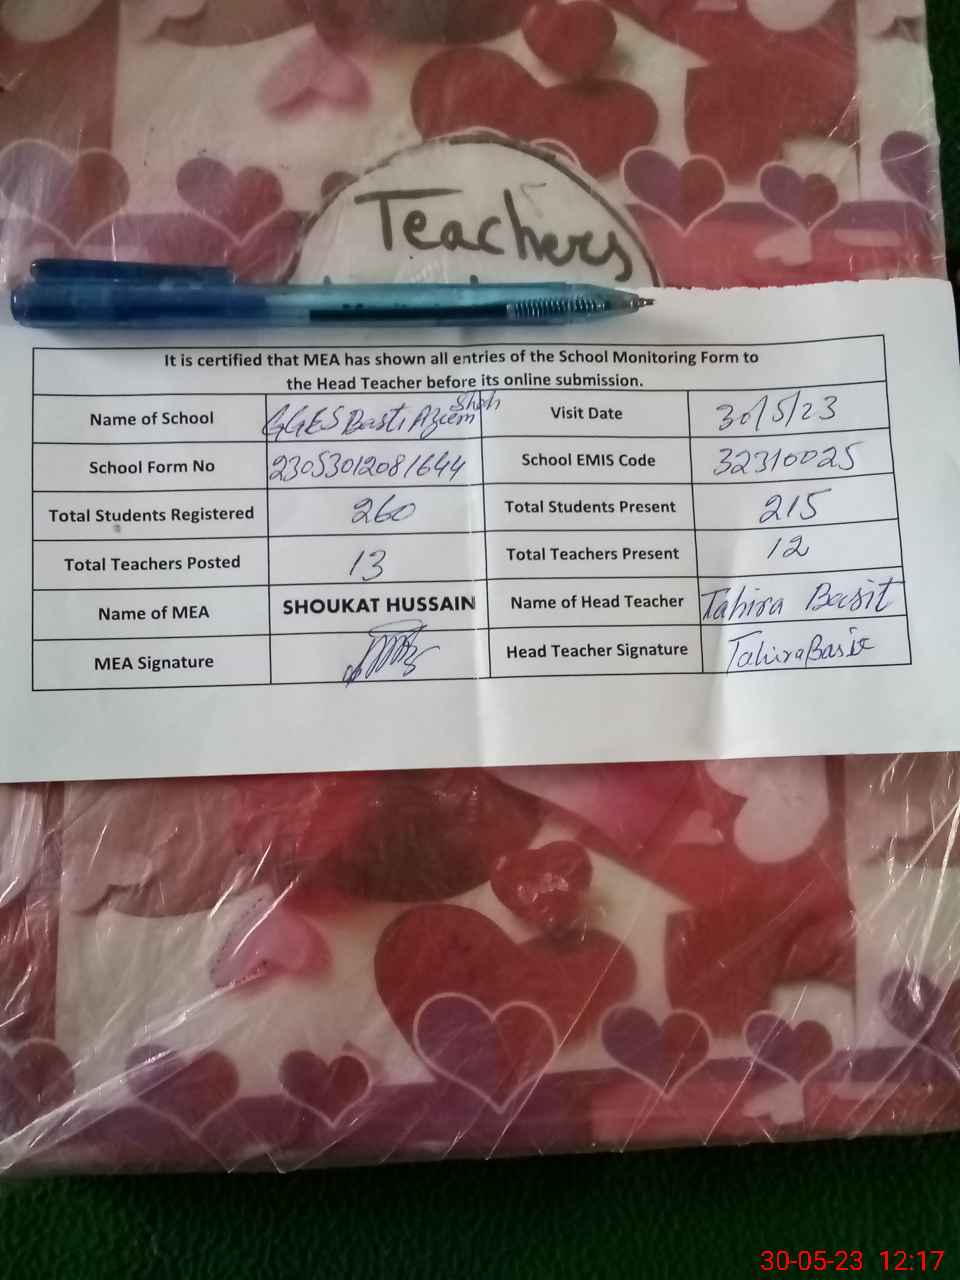 Teachers
It is certified that MEA has shown all entries of the School Monitoring Form to
the Head Teacher before its online submission.
Name of School GGES Basti Aziem Shah Visit Date 30/5/23
School Form No 23053012081644 School EMIS Code 32310025
Total Students Registered 260 Total Students Present 215
Total Teachers Posted 13 Total Teachers Present 12
Name of MEA SHOUKAT HUSSAIN Name of Head Teacher Tahira Basit
MEA Signature Head Teacher Signature Tahira Basit
30-05-23 12:17